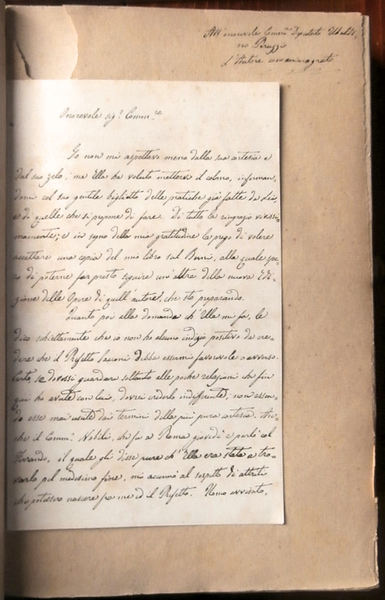 All' onorevole Comm.re Deputato Ubaldi-
no Peruzzi
L'Autore
Onorevole sig.r Comm.re
Io non mi aspettavo meno dalla sua cortesia e
dal suo zelo; ma Ella ha voluto mettervi il colmo, informan-
domi col suo gentile biglietto delle pratiche già fatte da Lei,
e di quelle che si propone di fare. Di tutto la ringrazio vivissi-
mamente; e in segno della mia gratitudine la prego di volere
accettare una copia del mio libro sul Berni, alla quale spe-
ro di poterne far presto seguire un'altra della nuova Edi-
zione delle Opere di quell'autore, che sto preparando.
Quanto poi alla domanda ch'Ella mi fa, le
dico schiettamente che io non ho alcuno indizio positivo da cre-
dere che il Prefetto debba essermi favorevole o avverso.
Certo se dovessi guardare soltanto alle poche relazioni che fin
qui ho avute con lui, dovrei crederlo indifferente, non essen-
do esse mai uscite dai termini della più pura cortesia. An-
che il Comm. che fu a Roma giovedì e parlò col
il quale gli disse pure ch'Ella era stata a tro-
varlo pel medesimo fine, mi accennò al sospetto di attriti
che potessero nascere fra me ed il Prefetto. Uomo avvisato,